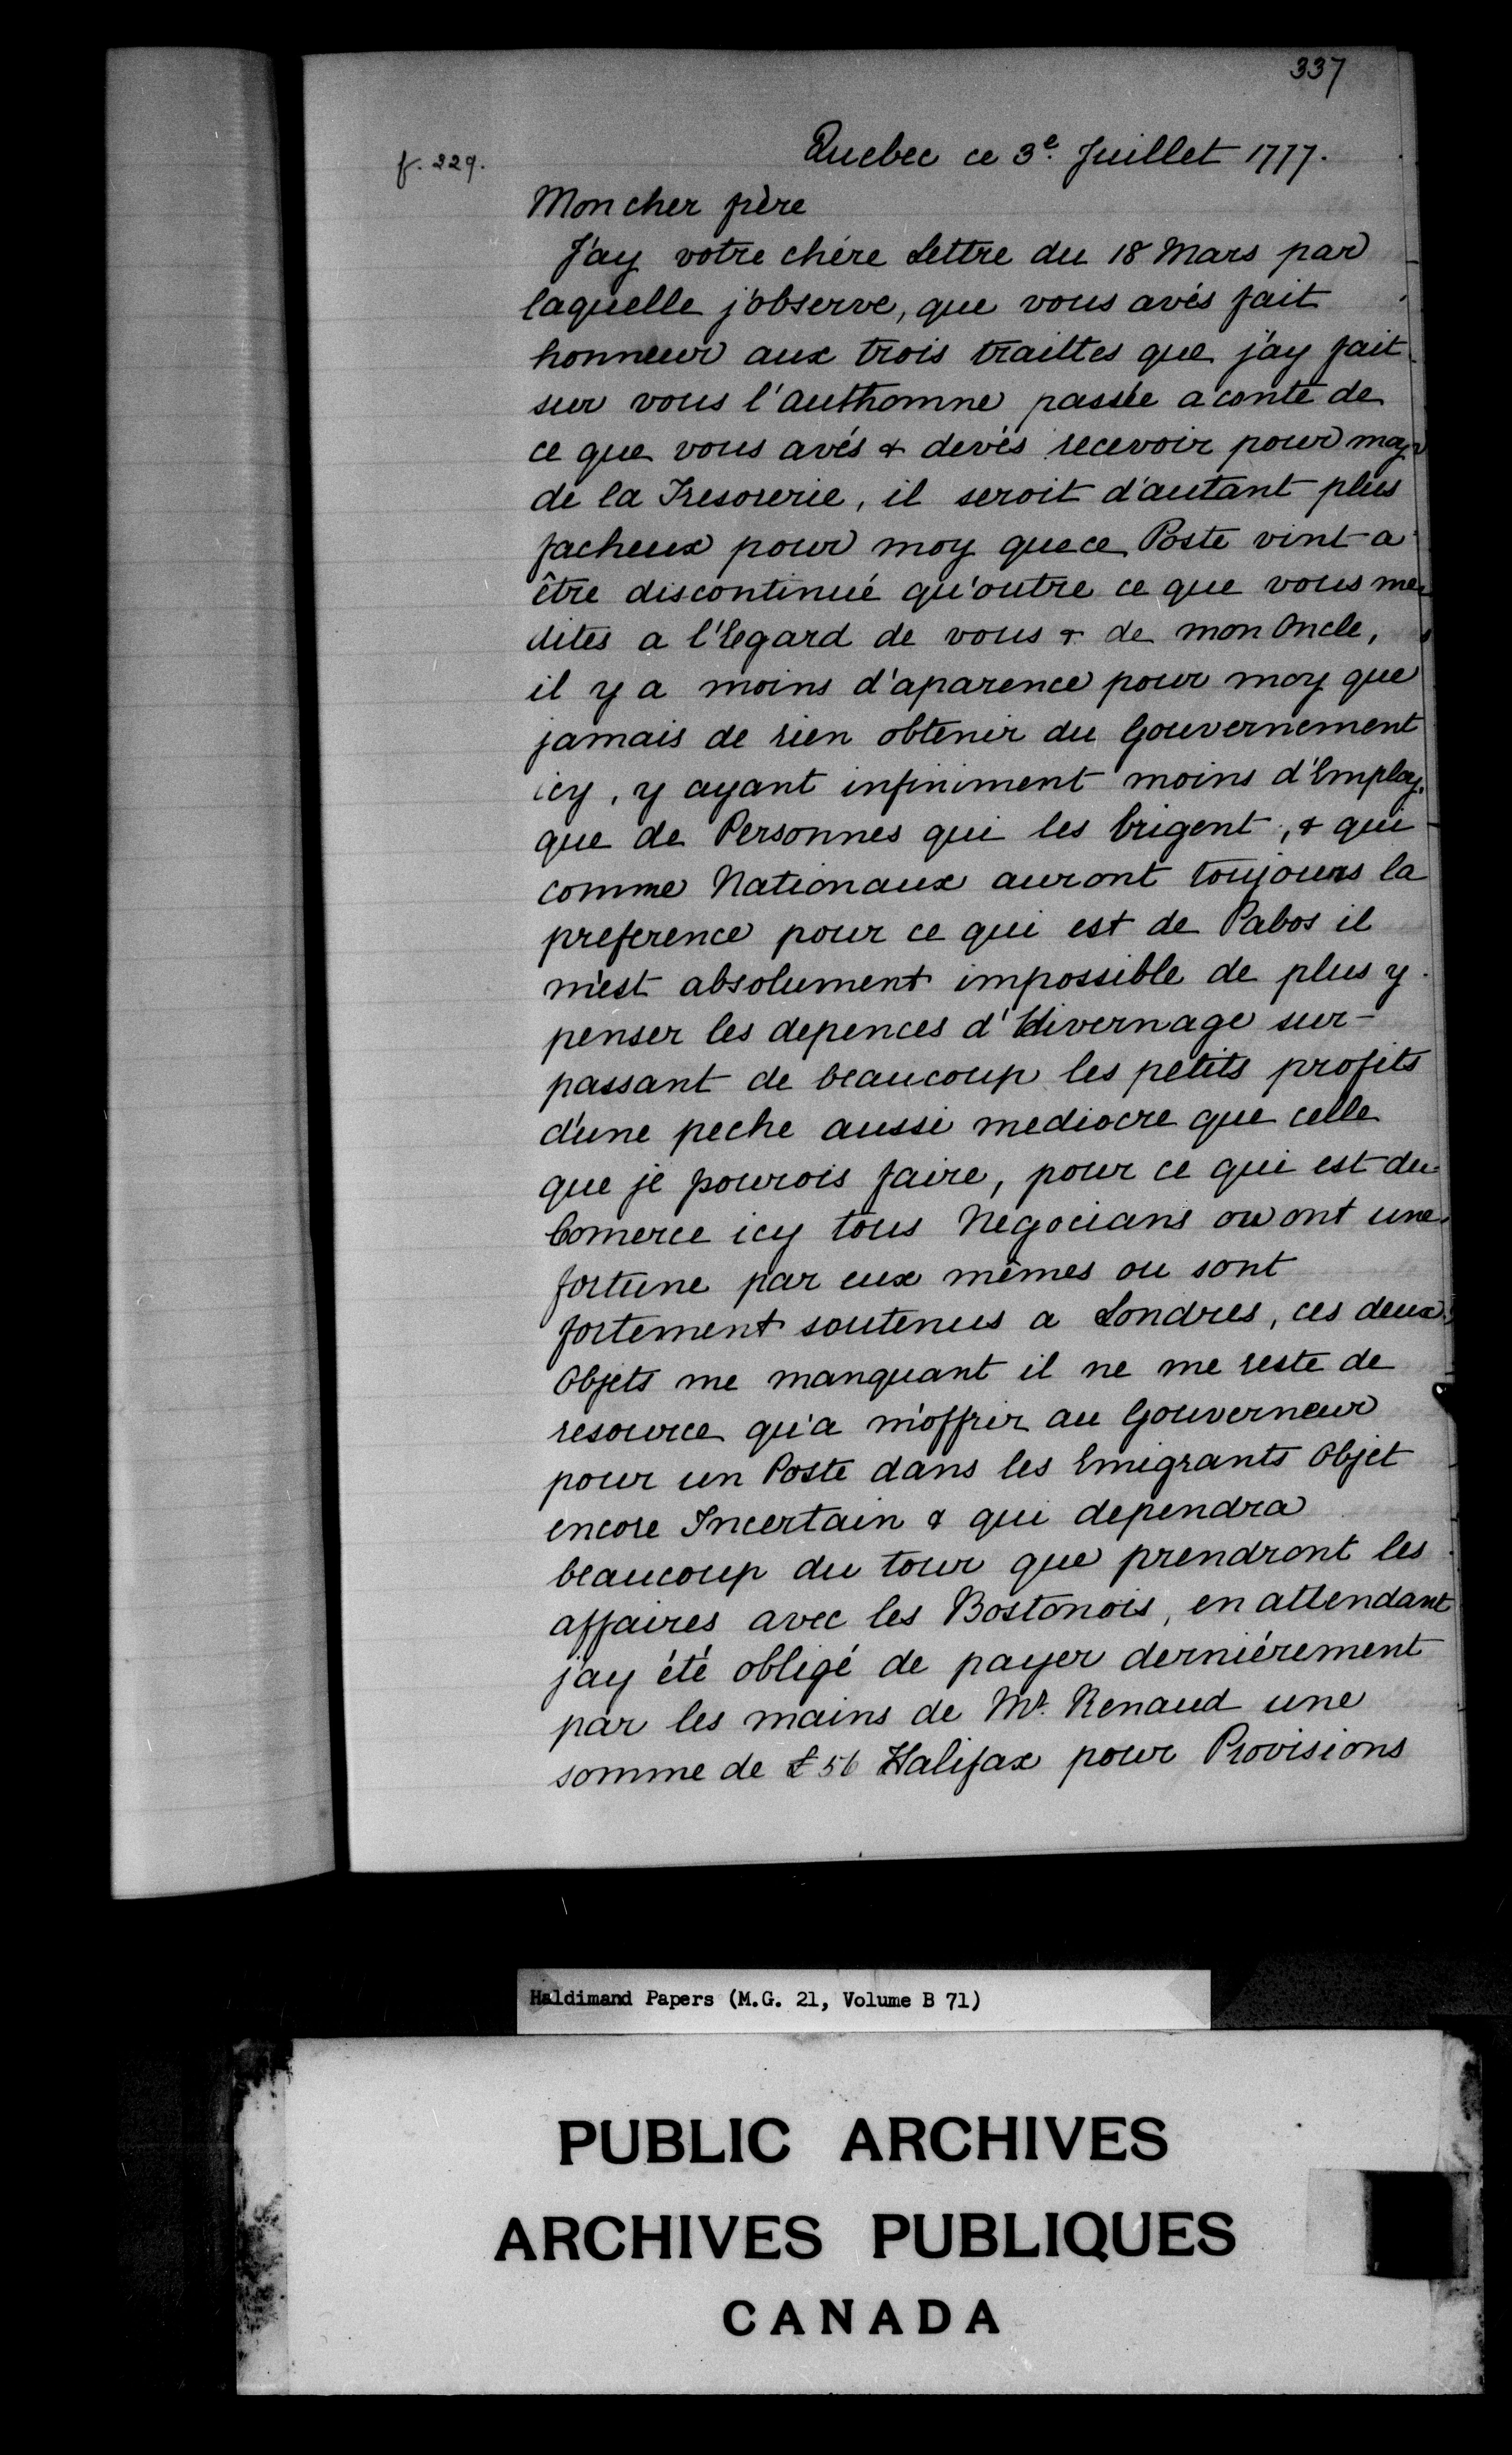 337
f. 229.
Quebec ce 3e. Juillet 1777.
Mon cher père
J'ay votre chére Lettre du 18 Mars par
laquelle j'observe, que vous avés fait
honneur aux trois traittes que j'ay fait
sur vous l'authomne passée a conte de
ce que vous avés & devés recevoir pour moy
de la Tresorerie, il seroit d'autant plus
facheux pour moy que ce Poste vint a
être discontinué qu'outre ce que vous me
dites a l'Egard de vous & de mon Oncle,
il y a moins d'aparence pour moy que
jamais de rien obtenir du Gouvernement
icy, y ayant infiniment moins d'Employ.
que de Personnes qui les brigent, & qui
comme Nationaux auront toujours la
preference pour ce qui est de Pabos il
m'est absolument impossible de plus y
penser les depences d'Hivernage sur-
passant de beaucoup les petits profits
d'une peche aussi mediocre que celle
que je pourois faire, pour ce qui est du
Comerce icy tous Negocians ou ont une
fortune par eux mêmes ou sont
fortement soutenus a Londres, ces deux
Objets me manquant il ne me reste de
resource qu'a m'offrir au Gouverneur
pour un Poste dans les Emigrants Objet
encore Incertain & qui dependra
beaucoup du tour que prendront les
affaires avec les Bostonois, en attendant
j'ay été obligé de payer derniérement
par les mains de Mr. Renaud une
somme de £56 Halifax pour Provisions
Haldimand Papers (M.G. 21, Volume B 71)
PUBLIC ARCHIVES
ARCHIVES PUBLIQUES
CANADA